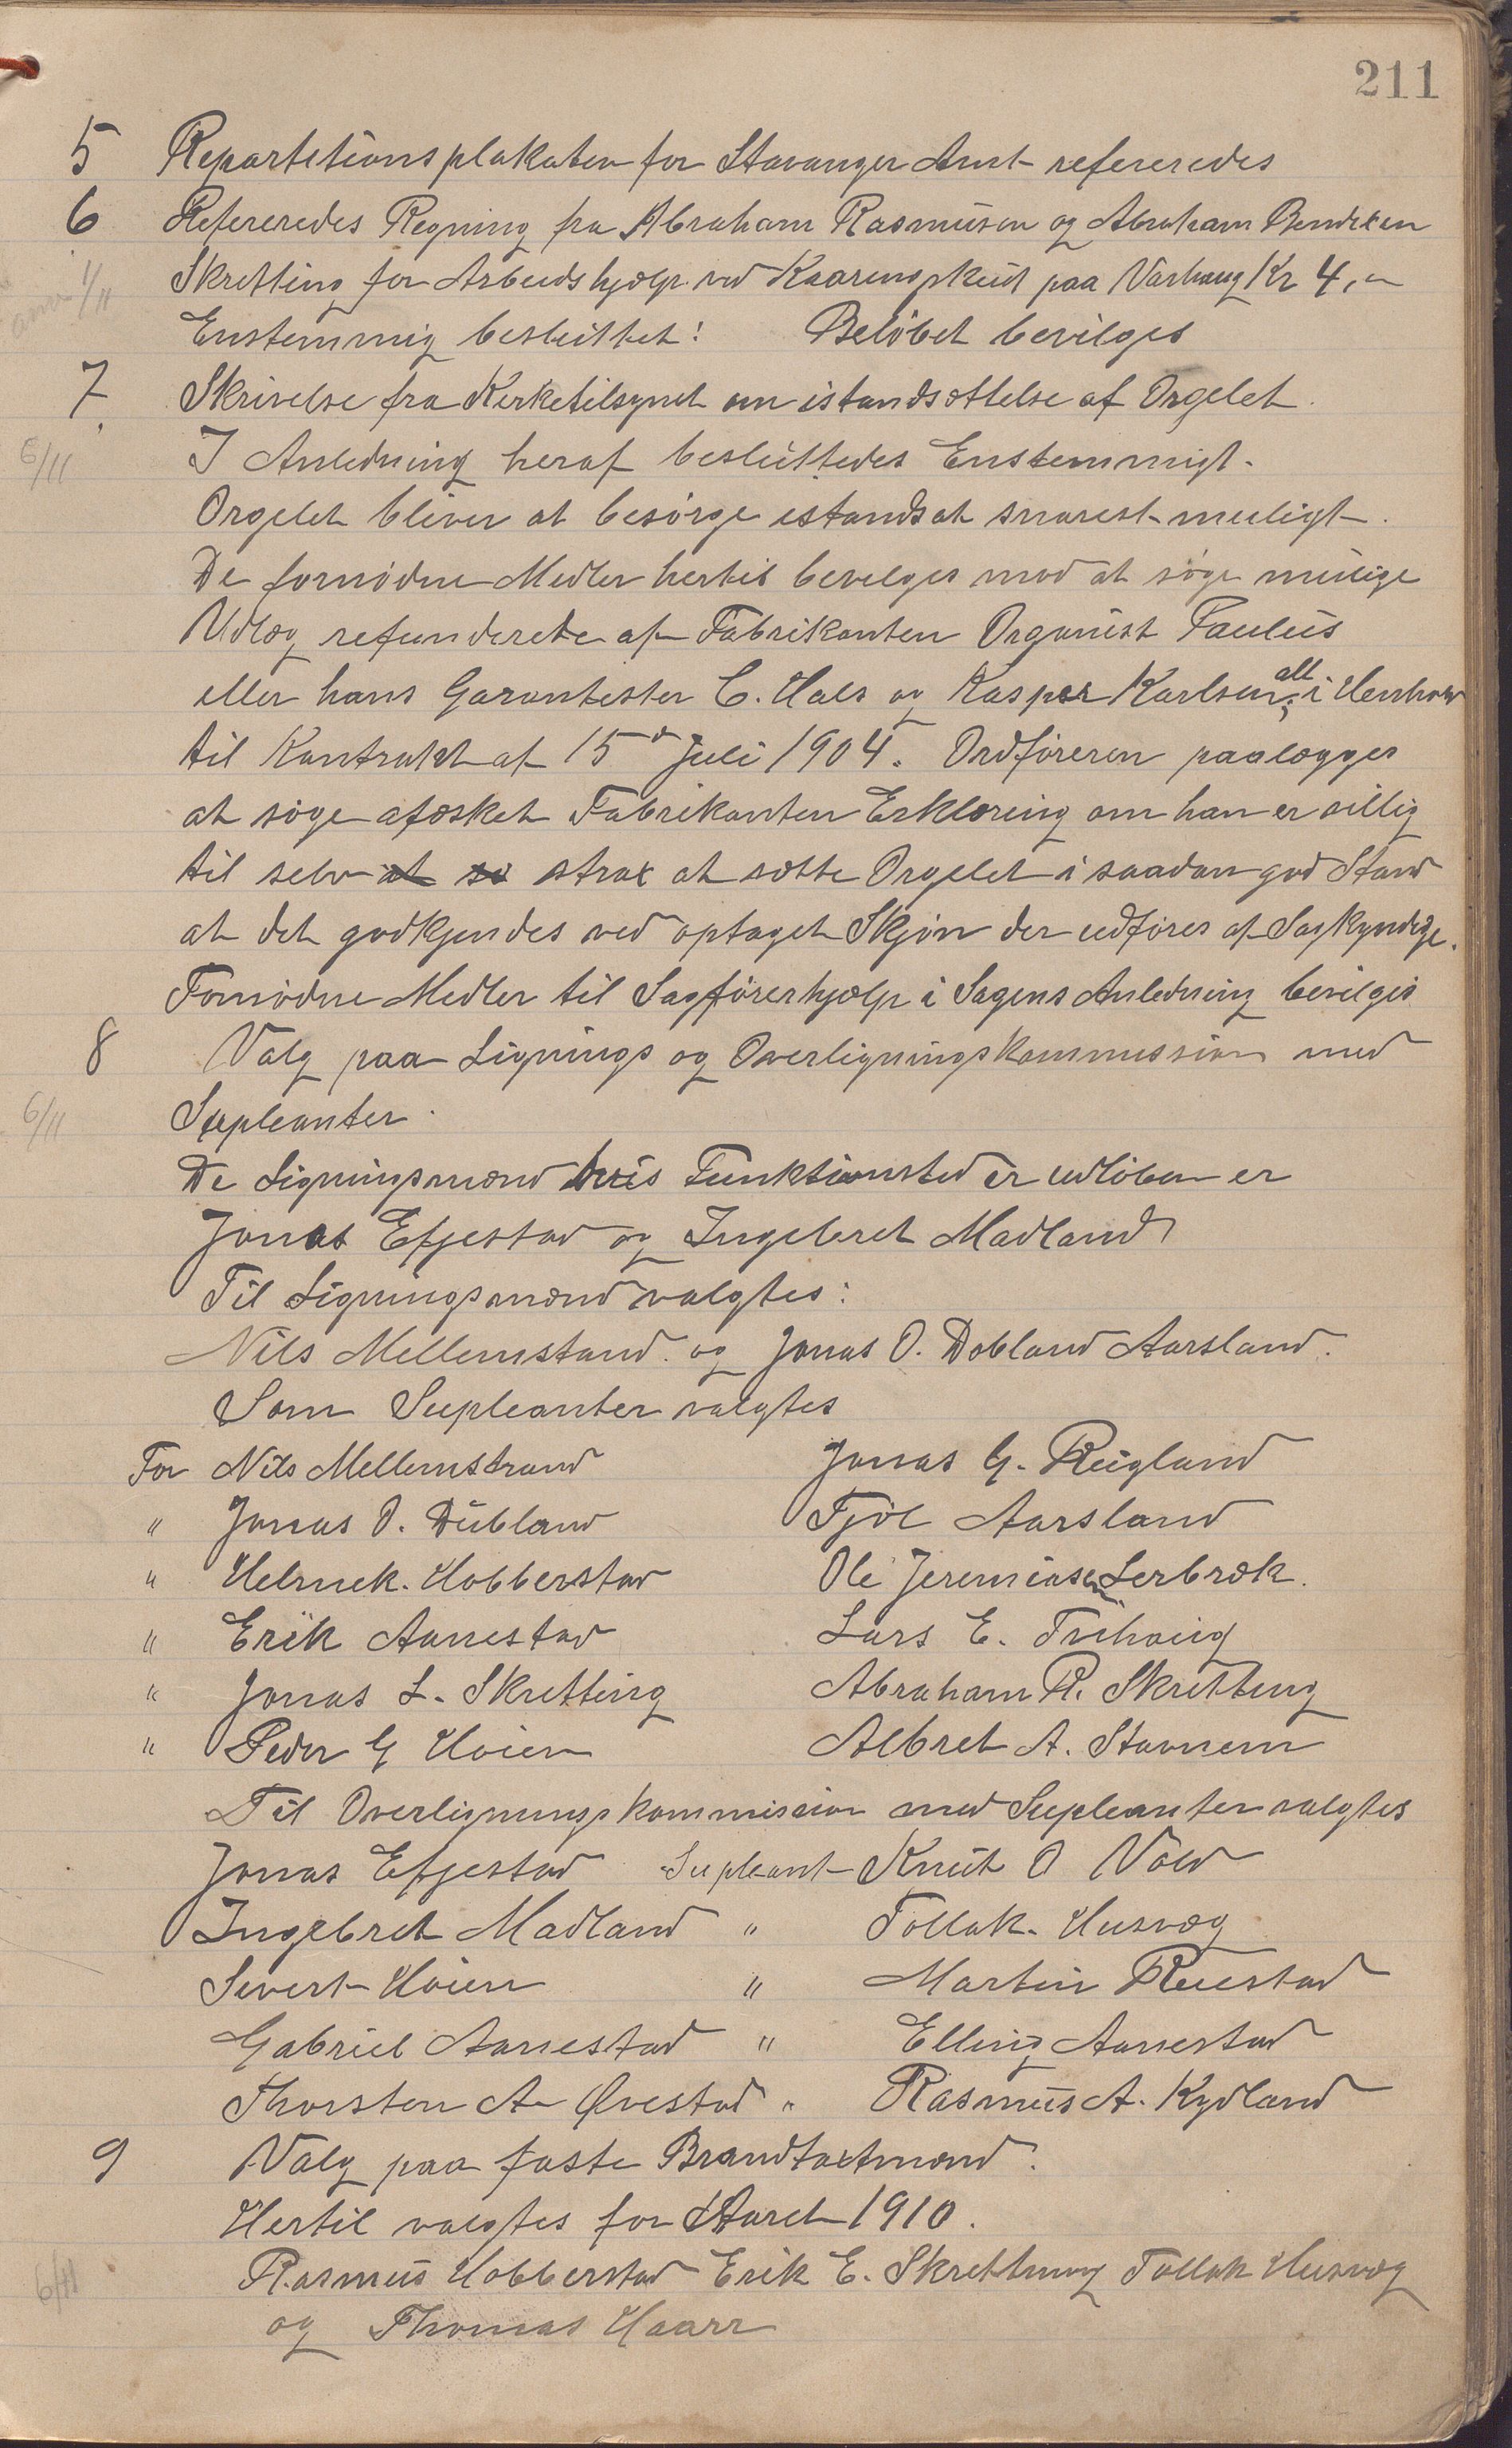 211
5 Repartitionsplakaten for Stavanger Amt refereredes
6 Refereredes Regning fra Abraham Rasmussen og Abraham Bendiksen
1/11 Skretting for Arbeidshjælp ved paa Varhaug Kr 4,-
Enstemmig besluttet: Beløbet bevilges
7. Skrivelse fra Kirketilsynet om istandsættelse af Orgelet.
6/11 I Anledning heraf besluttedes Enstemmigt.
Orgelet bliver at besørge istandsat snarest muligt.
De fornødne Medler hertil bevilges mod at søge mulige
Udlæg refunderede af Fabrikanten Organist Paulus
eller hans Garantister C. Hals og Kasper Karlsen, alt i Henhold
til Kontrakt af 15de Juli 1904. Ordføreren paalægges
at søge afæsket Fabrikanten Erklæring om han er villig
til selv at sæ strax at sætte Orgelet i saadan god Stand
at det godkjendes ved optaget Skjøn der udføres af Sagkyndige.
Fornødne Medler til Sagførerhjælp i Sagens Anledning bevilges
8 Valg paa Lignings og Overligningskommission med
6/11 Supleanter.
De Ligningsmænd hvis Funktionstid er udløben er
Jonas Efjestad og Ingebret Madland
Til Ligningsmænd valgtes:
Nils Mellemstrand og Jonas O. Dubland Aarsland.
Som Supleanter valgtes
For Nils Mellemstrand Jonas G. Rugland
" Jonas O. Dubland Fjøl Aarsland
" Helmek. Hobberstad Ole Jeremiasen Lerbræk.
" Erik Aanestad Lars E. Tuhaug
" Jonas L. Skretting Abraham R. Skretting
" Peder G Høien Albret A. Stavnem
Til Overligningskommission med Supleanter valgtes
Jonas Efjestad Supleant Knut O Vold
Ingebret Madland " Tollak. Husvæg
Sivert Høien " Martin Ruestad
Gabriel Aanestad " Elling Aanestad
Thorsten A Qvestad " Rasmus A. Kydland
9 Valg paa faste Brandtaxtmænd.
Hertil valgtes for Aaret 1910.
6/11 Rasmus Hobberstad Erik E. Skretting Tollak Husvæg
og Thomas Haarr